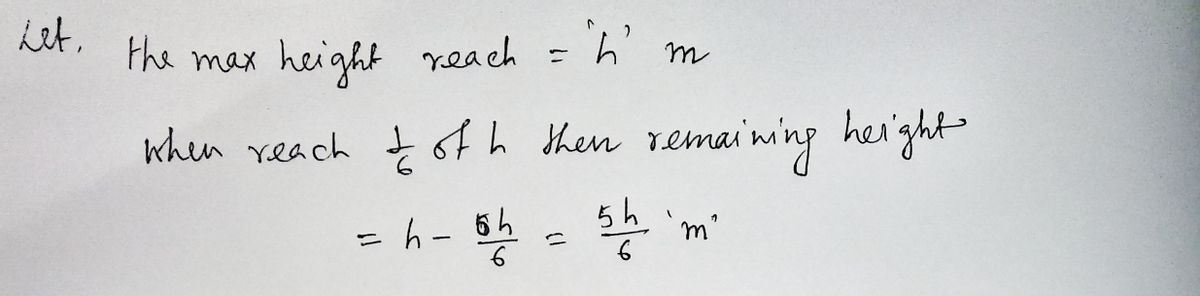 Let. the max height reach = 'h' m
when reach 1/6 of h then remaining height
= h - 5h/6 = 5h/6 'm'